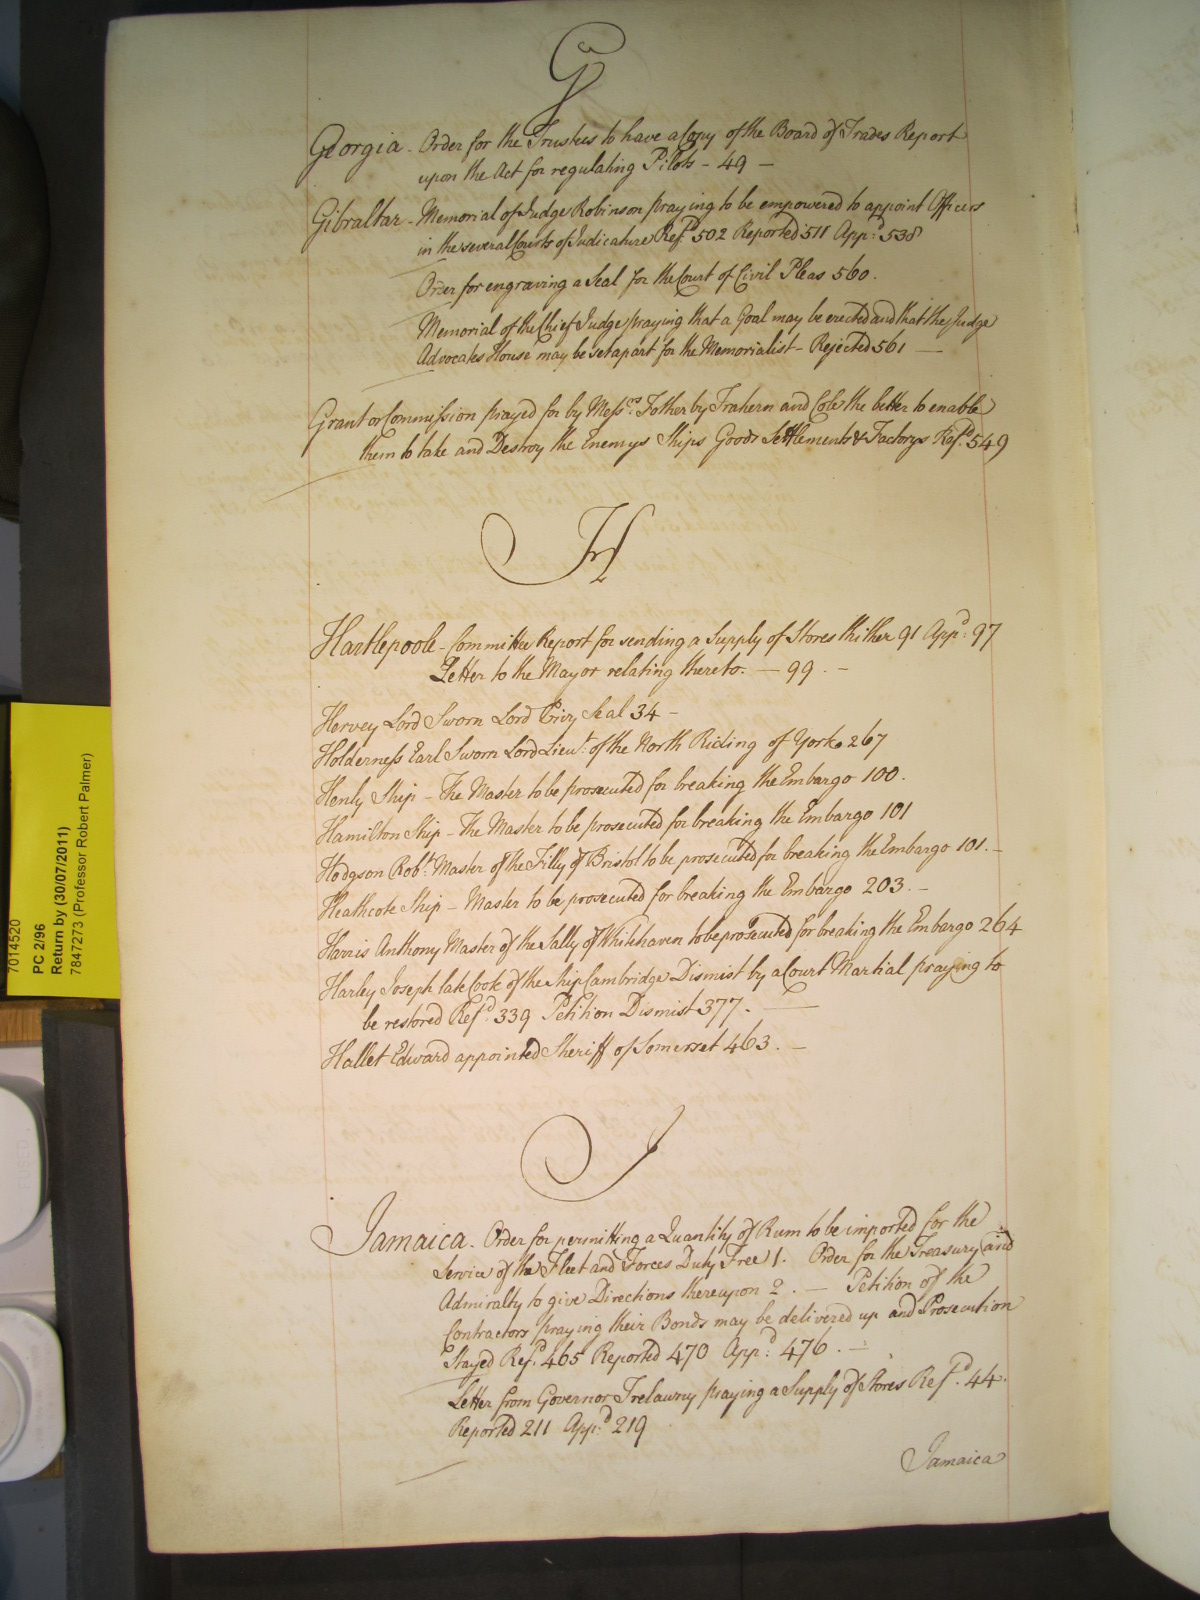 G
Georgia - Order for the Trustees to have a Copy of the Board of Trades Report
upon the Act for regulating Pilots - 49 -
Gibraltar - Memorial of Judge Robinson praying to be empowered to appoint Officers
in the several Courts of Judicature Ref.d 502 Reported 511 App.d 538
Order for engraving a Seal for the Court of Civil Pleas 560.
Memorial of the Chief Judge praying that a Goal may be erected and that the Judge
Advocates House may be set apart for the Memorialist - Rejected 561 -
Grant or Commission prayed for by Mess.rs Fotherby Trahern and Cole the better to enable
them to take and Destroy the Enemys Ships Goods Settlements & Factorys Ref.d 549
H
Hartlepoole - Committee Report for sending a Supply of Stores thither 91 App.d 97
Letter to the Mayor relating thereto. - 99. -
Hervey Lord Sworn Lord Privy Seal 34 -
Holderness Earl Sworn Lord Lieu.t of the North Riding of York 267
Henly Ship - The Master to be prosecuted for breaking the Embargo 100.
Hamilton Ship - The Master to be prosecuted for breaking the Embargo 101
Hodgson Rob.t Master of the Filly of Bristol to be prosecuted for breaking the Embargo 101. -
Heathcote Ship - Master to be prosecuted for breaking the Embargo 203. -
Harris Anthony Master of the Sally of Whitehaven to be prosecuted for breaking the Embargo 264
Harley Joseph late Cook of the Ship Cambridge Dismist by a Court Martial praying to
be restored Ref.d 339 Petition Dismist 377. -
Hallet Edward appointed Sheriff of Somerset 463. -
J
Jamaica. Order for permitting a Quantity of Rum to be imported for the
Service of the Fleet and Forces Duty Free 1. Order for the Treasury and
Admiralty to give Directions thereupon 2. - Petition of the
Contractors praying their Bonds may be delivered up and Prosecution
Stayed Ref.d 465 Reported 470 App.d 476. -
Letter from Governor Trelawny praying a Supply of Stores Ref.d 44.
Reported 211 App.d 219
Jamaica
7014520
PC 2/96
Return by (30/07/2011)
7847273 (Professor Robert Palmer)